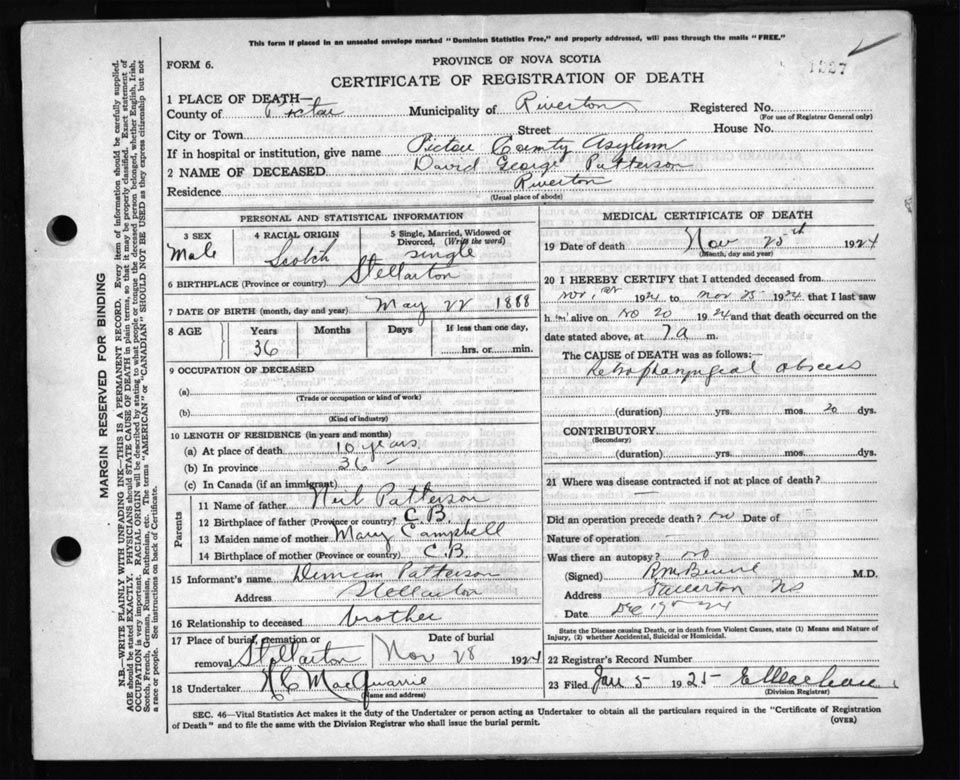 This form if placed in an unsealed envelope marked "Dominion Statistics Free," and properly addressed, will pass through the mails "FREE."
1227
FORM 6.
PROVINCE OF NOVA SCOTIA
CERTIFICATE OF REGISTRATION OF DEATH
1 PLACE OF DEATH—
County of Pictou Municipality of Riverton Registered No.
(For use of Registrar General only)
City or Town Street House No.
If in hospital or institution, give name Pictou County Asylum
2 NAME OF DECEASED David George Patterson
Residence Riverton
(Usual place of abode)
PERSONAL AND STATISTICAL INFORMATION
3 SEX 4 RACIAL ORIGIN 5 Single, Married, Widowed or Divorced, (Write the word)
Male Scotch single
6 BIRTHPLACE (Province or country) Stellarton
7 DATE OF BIRTH (month, day and year) May 22 1888
8 AGE Years Months Days If less than one day,
36 hrs. or min.
9 OCCUPATION OF DECEASED
(a)
(Trade or occupation or kind of work)
(b)
(Kind of industry)
10 LENGTH OF RESIDENCE (in years and months)
(a) At place of death 10 years
(b) In province 36 —
(c) In Canada (if an immigrant)
Parents
11 Name of father Neil Patterson
12 Birthplace of father (Province or country) C.B.
13 Maiden name of mother Mary Campbell
14 Birthplace of mother (Province or country) C.B.
15 Informant's name Duncan Patterson
Address Stellarton
16 Relationship to deceased brother
17 Place of burial, cremation or removal Stellarton Date of burial Nov 28 1924
18 Undertaker MacQuarrie
(Name and address)
MEDICAL CERTIFICATE OF DEATH
19 Date of death Nov 25th 1924
(Month, day and year)
20 I HEREBY CERTIFY that I attended deceased from
Nov. 1924 to Nov 25 1924 that I last saw
him alive on No 20 1924 and that death occurred on the
date stated above, at 7 a m.
The CAUSE of DEATH was as follows:—
Retropharyngeal abscess
(duration) yrs. mos. 20 dys.
CONTRIBUTORY
(Secondary)
(duration) yrs. mos. dys.
21 Where was disease contracted if not at place of death?
—
Did an operation precede death? no Date of
Nature of operation —
Was there an autopsy? no
(Signed) M.D.
Address NS
Date Dec 24
State the Disease causing Death, or in death from Violent Causes, state (1) Means and Nature of Injury, (2) whether Accidental, Suicidal or Homicidal.
22 Registrar's Record Number
23 Filed Jan 5 1925
(Division Registrar)
SEC. 46—Vital Statistics Act makes it the duty of the Undertaker or person acting as Undertaker to obtain all the particulars required in the "Certificate of Registration
of Death" and to file the same with the Division Registrar who shall issue the burial permit.
(OVER)
MARGIN RESERVED FOR BINDING
N.B.—WRITE PLAINLY WITH UNFADING INK—THIS IS A PERMANENT RECORD. Every item of information should be carefully supplied.
AGE should be stated EXACTLY. PHYSICIANS should STATE CAUSE OF DEATH in plain terms, so that it may be properly classified. Exact statement of
OCCUPATION is very important. RACIAL ORIGIN will be described by stating to what people or tongue the deceased person belonged, whether English, Irish,
Scotch, French, German, Russian, Ruthenian, etc. The terms "AMERICAN" or "CANADIAN" SHOULD NOT BE USED as they express citizenship but not
a race or people. See instructions on back of Certificate.